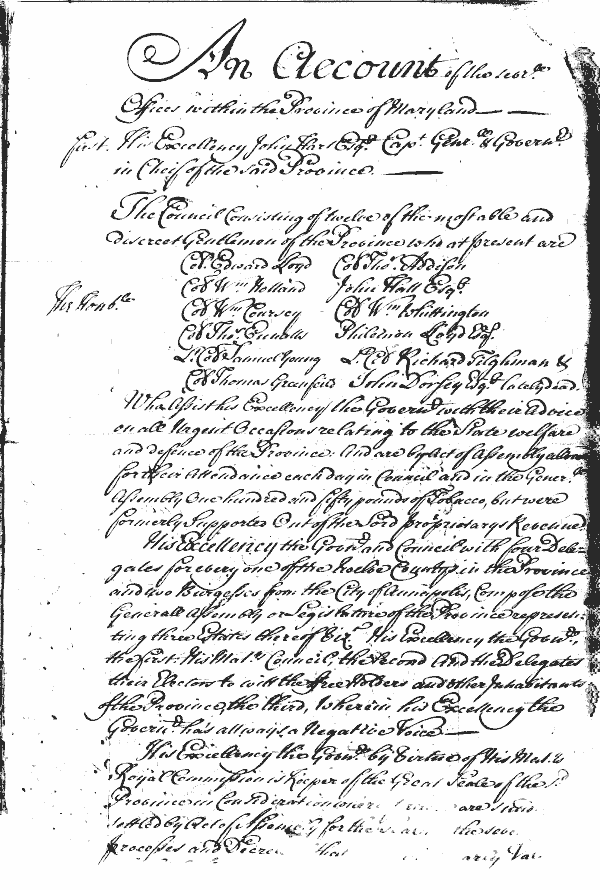 An Account of the sevr.ll
Offices within the Province of Maryland
first. His Excellency John Hart Esq.r Cap.t Gen.ll & Govern.r
in Cheif of the said Province.
The Council Consisting of twelve of the most able and
discreet Gentlemen of the Province who at present are
Coll. Edward Loyd Coll Tho.s Addison
Coll W.m Holland John Hall Esq.r
His Hon.ble Coll W.m Coursey Coll W.m Whittington
Coll Tho.s Ennalls Philemon Loyd Esq.
L.t Coll Samuel Young L.t Coll Richard Tilghman &
Coll Thomas Greenfeild John Dorsey Esq.r lately dead.
Who Assist his Excellency the Govern.r with their Advice
on all Urgent Occasions relating to the State welfare
and defence of the Province. And are by Act of Assembly allow
for their Attendance each day in Council and in the Gener.ll
Assembly One hundred and fifty pounds of Tobacco, but were
formerly Supported Out of the Lord Proprietarys Revenue.
His Excellency the Gov.r and Council with four Dele-
gates for every one of the twelve Countys in the Province
and two Burgesses from the City of Annapolis, Compose the
Generall Assembly or Legislature of the Province represen-
ting three Estates thereof Viz.t His Excellency the Gov.r
the first. His Maj.ts Council, the Second And the Delegates
their Electors to wit the free holders and other Inhabitants
of the Province, the third, Wherein his Excellency the
Govern.r has allways a Negative Voice
His Excellency the Gov.r by Virtue of His Maj.ts
Royal Commission is Keeper of the Great Seale of the s.d
Province in Consideration where are
settled by Act of Assembly for the the seve
Processes and Decree that